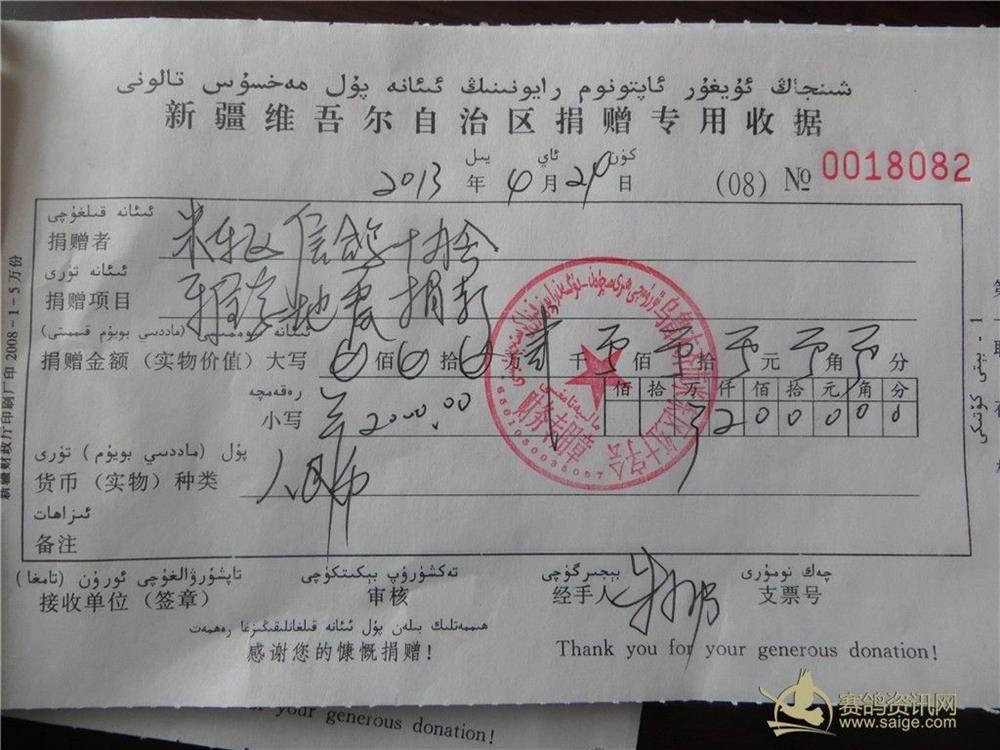 شىنجاڭ ئۇيغۇر ئاپتونوم رايونىنىڭ ئىئانە پۇل مەخسۇس تالونى
新疆维吾尔自治区捐赠专用收据
يىل ئاي كۈن
2013 年 4 月 24 日 (08) № 0018082
ئىئانە قىلغۇچى
捐赠者 米东区信鸽协会
ئىئانە تۈرى
捐赠项目 地震捐款
捐赠金额（实物价值）大写 佰 拾 万 贰 千 零 佰 零 拾 零 元 零 角 零 分
رەقەمچە
小写 2000.00
佰 拾 万 仟 佰 拾 元 角 分
2 0 0 0 0 0
پۇل (ماددىسىي بويۇم) تۈرى
货币（实物）种类 人民币
ئىزاھات
备注
تاپشۇرۇۋالغۇچى ئورۇن (تامغا) تەكشۈرۈپ بېكىتكۈچى بېجىرگۈچى چەك نومۇرى
接收单位（签章） 审核 经手人 支票号
ھىممەتلىك بىلەن پۇل ئىئانە قىلغانلىقىڭىزغا رەھمەت
感谢您的慷慨捐赠！ Thank you for your generous donation!
新疆财政厅印刷厂印 2008-1-5万份
财务专用章
for your generous donation!
赛鸽资讯网
www.saige.com